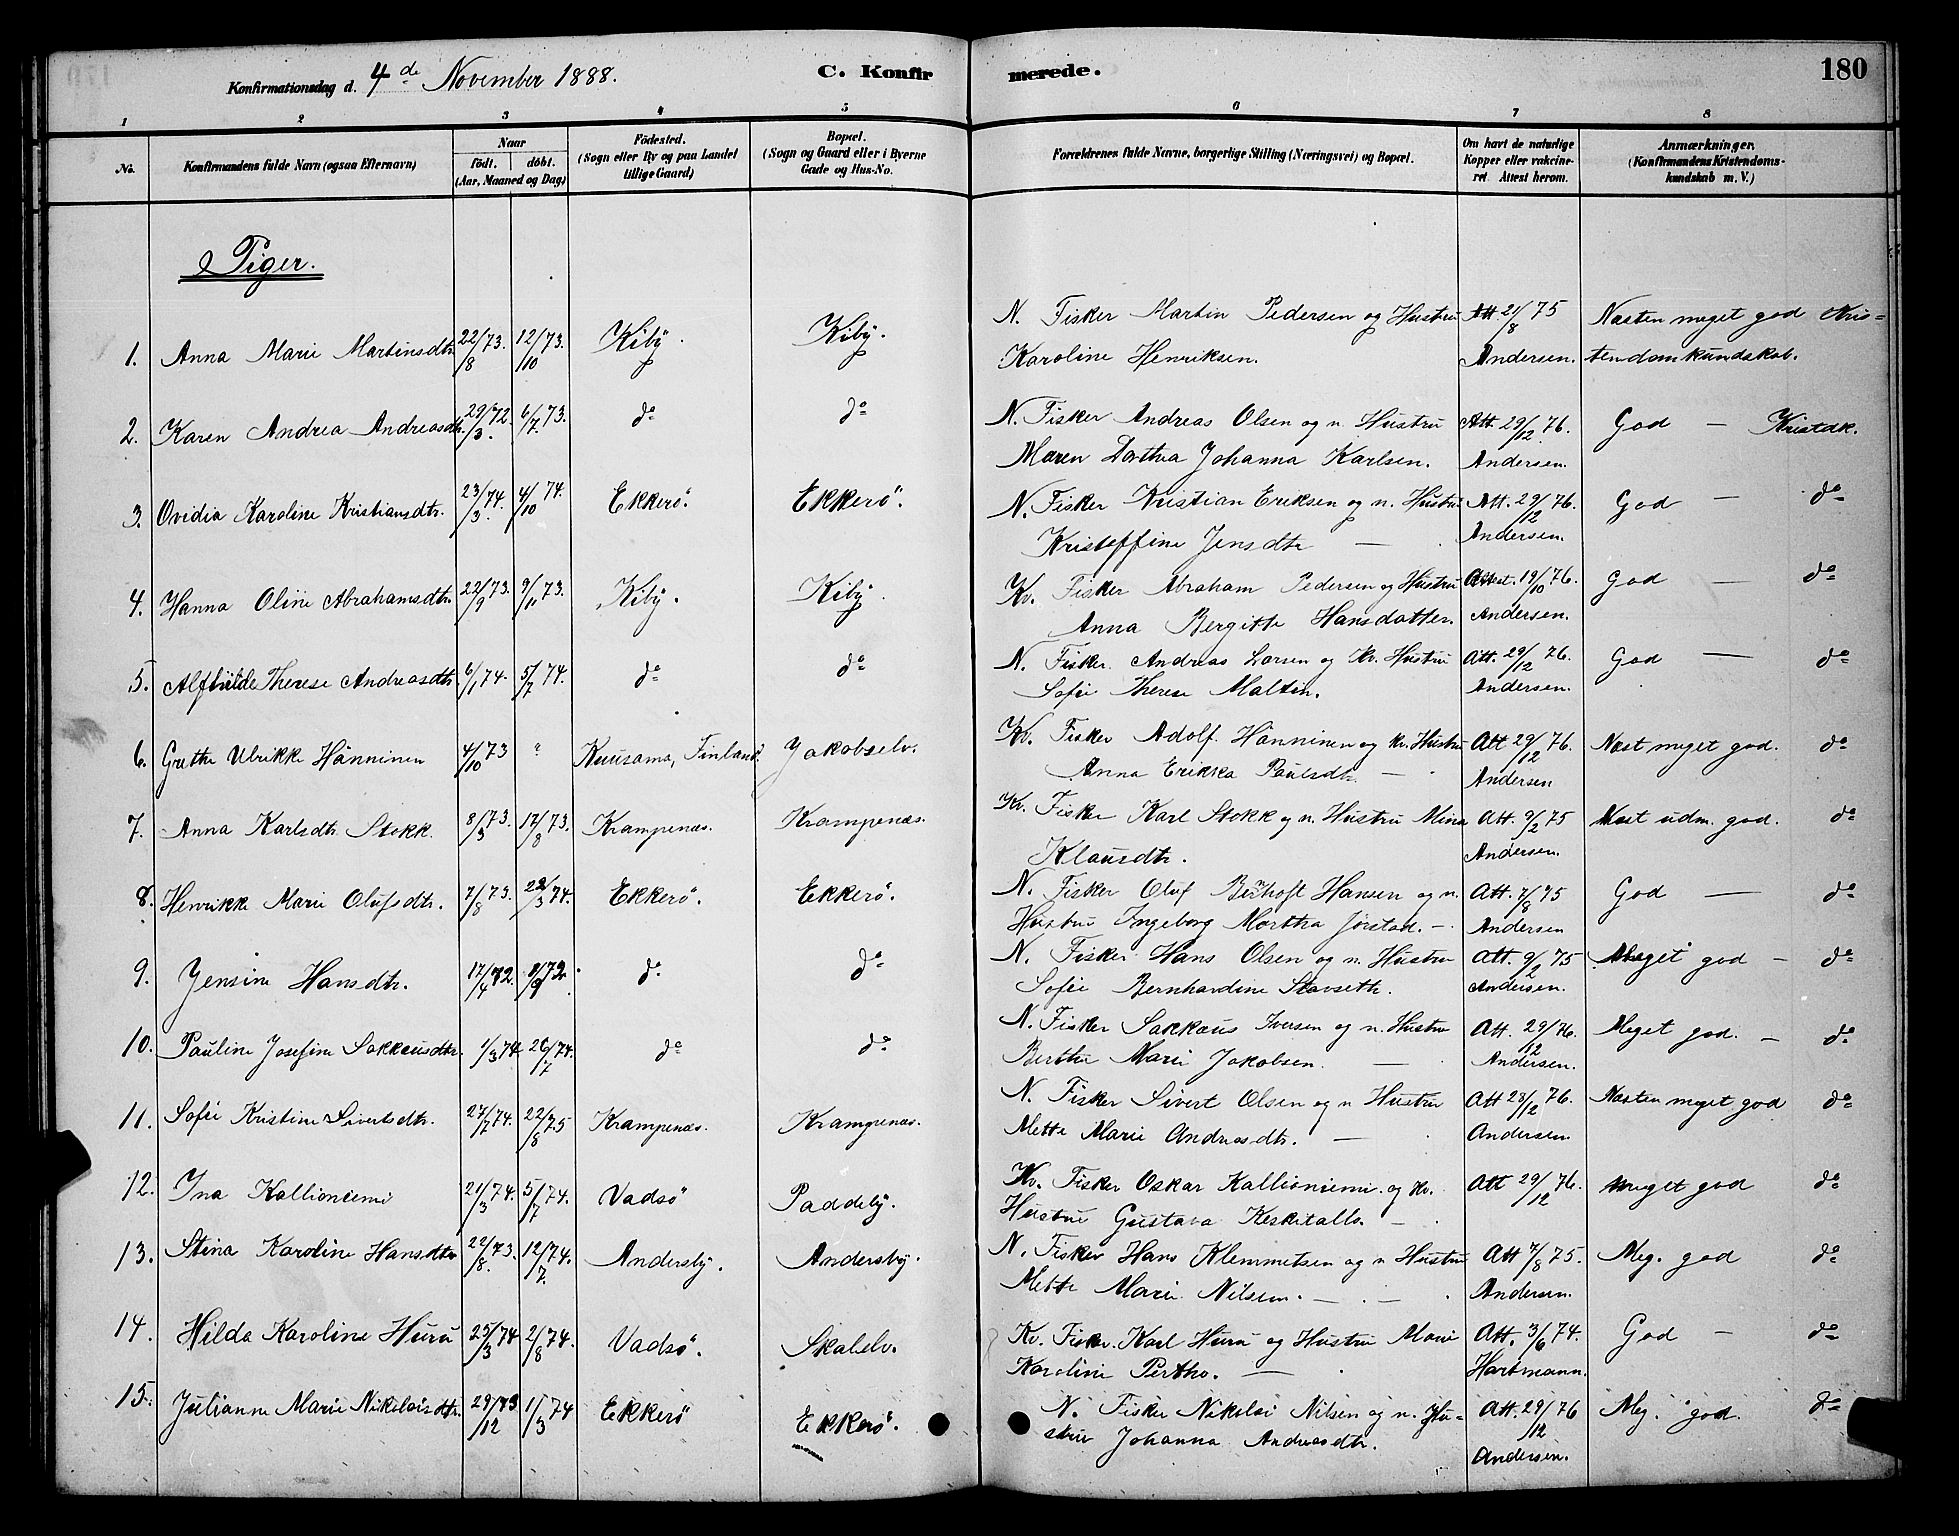 Konfirmationsdag d. 4de November 1888.
C. Konfir
merede.
180
1 2 3 4 5 6 7 8
No.
Konfirmandens fulde Navn (ogsaa Efternavn)
Naar
født. døbt.
(Aar, Maaned og Dag)
Fødested.
(Sogn eller By og paa Landet
tillige Gaard)
Bopæl.
(Sogn og Gaard eller i Byerne
Gade og Hus-No.
Forældrenes fulde Navne, borgerlige Stilling (Næringsvei) og Bopæl.
Om havt de naturlige
Kopper eller vakcine-
ret Attest herom.
Anmærkninger.
(Konfirmandens Kristendoms-
kundskab m. V.)
Piger.
1. Anna Marie Martinsdtr. 22/8 73. 12/10 73. Kiby. Kiby. N. Fisker Martin Pedersen og Hustru Att. 21/8 75 Næsten meget god Kris-
Karoline Henriksen. Andersen. tendomkundskab.
2. Karen Andrea Andreasdtr. 29/3 72. 6/7 73. do do N. Fisker Andreas Olsen og n. Hustru Att. 29/12 76. God — Kristdk.
Maren Dorthea Johanna Karlsen. Andersen.
3. Ovidia Karoline Kristiansdtr. 23/3 74. 4/10 74. Ekkerö. Ekkerö. N. Fisker Kristian Eriksen og n. Hustru Att. 29/12 76. God — do
Kristoffine Jensdtr — Andersen.
4. Hanna Oline Abrahamsdtr. 22/9 73. 9/11 73. Kiby. Kiby. Kv. Fisker Abraham Pedersen og Hustru Attest. 19/10 76. God — do
Anna Bergitte Hansdatter. Andersen.
5. Alfhilde Therese Andreasdtr. 6/1 74. 5/7 74. do do N. Fisker. Andreas Larsen og Kv. Hustru Att. 29/12 76. God — do
Sofie Therese Maltin. Andersen.
6. Grethe Ulrikke Hänninen 4/10 73 " Kuusama, Finland. Jakobselv. Kv. Fisker Adolf Hänninen og kv. Hustru Att 29/12 76. Næst meget god. do
Anna Erikka Paulsdtr. — Andersen
7. Anna Karlsdtr. Stokk. 8/3 73. 17/8 73. Krampenæs. Krampenæs. Kv. Fisker Karl Stokk og n. Hustru Mina Att. 9/2 75 Næst udm. god. do
Klausdtr. Andersen.
8. Henrikke Marie Olufsdtr. 7/8 73. 22/3 74. Ekkerö. Ekkerö. N. Fisker Oluf Hansen og n. Att. 7/8 75 God — do
Hustru Ingeborg Martha Jörstad. — Andersen
9. Jensine Hansdtr. 17/4 72. 72 do do N. Fisker Hans Olsen og n. Hustru Att. 9/2 75 Meget god — do
Sofie Bernhardine Stavseth. Andersen.
10. Pauline Josefine Sakkeusdtr. 1/3 74. 26/7 74. do do N. Fisker Sakkæus Iversen og n. Hustru Att. 29/12 76. Meget god. — do
Berthe Marie Jakobsen. — Andersen.
11. Sofie Kristine Sivertsdtr. 27/7 74. 22/8 75 Krampenæs. Krampenæs. N. Fisker Sivert Olsen og n Hustru Att 28/12 76. Næsten meget god do
Mette Marie Andreasdtr. — Andersen.
12. Ina Kallioniemi 21/3 74. 5/7 74. Vadsö Paddeby. Kv. Fisker Oskar Kallioniemi og kv. Att 29/12 76. Meget god do
Hustru Gustava Keskitallo. —
13. Stina Karoline Hansdtr 22/8 73. 12/7 74. Andersby. Andersby. N. Fisker Hans Klemmetsen og n Hustru Att 7/8 75. Meg. god do
Mette Marie Nilsen. — Andersen.
14. Hilda Karoline Huru 25/3 74 2/8 74. Vadsö. Skalelv. Kv. Fisker. Karl Huru og Hustru Marie Att. 3/6 74. God — do
Karoline Pertho. — Hartmann.
15. Julianne Marie Nikolaisdtr. 29/12 73 1/3 74 Ekkerö Ekkerö. N. Fisker Nikolai Nilsen og n. Hu- Att. 29/12 76 Meg. god. do
stru Johanna Andreasdtr. Andersen.